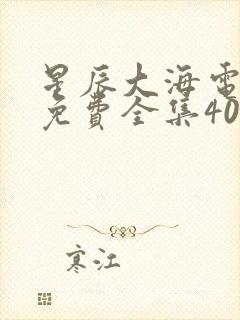 星辰大海电
免費全集40
寒江